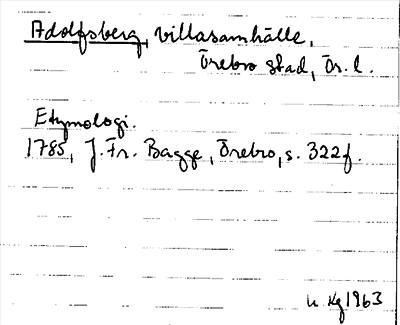 Adolfsberg, villasamhälle,
Örebro stad, Ör. l.
Etymologi.
1785, J. Fr. Bagge, Örebro, s. 322f.
u. Kg 1963